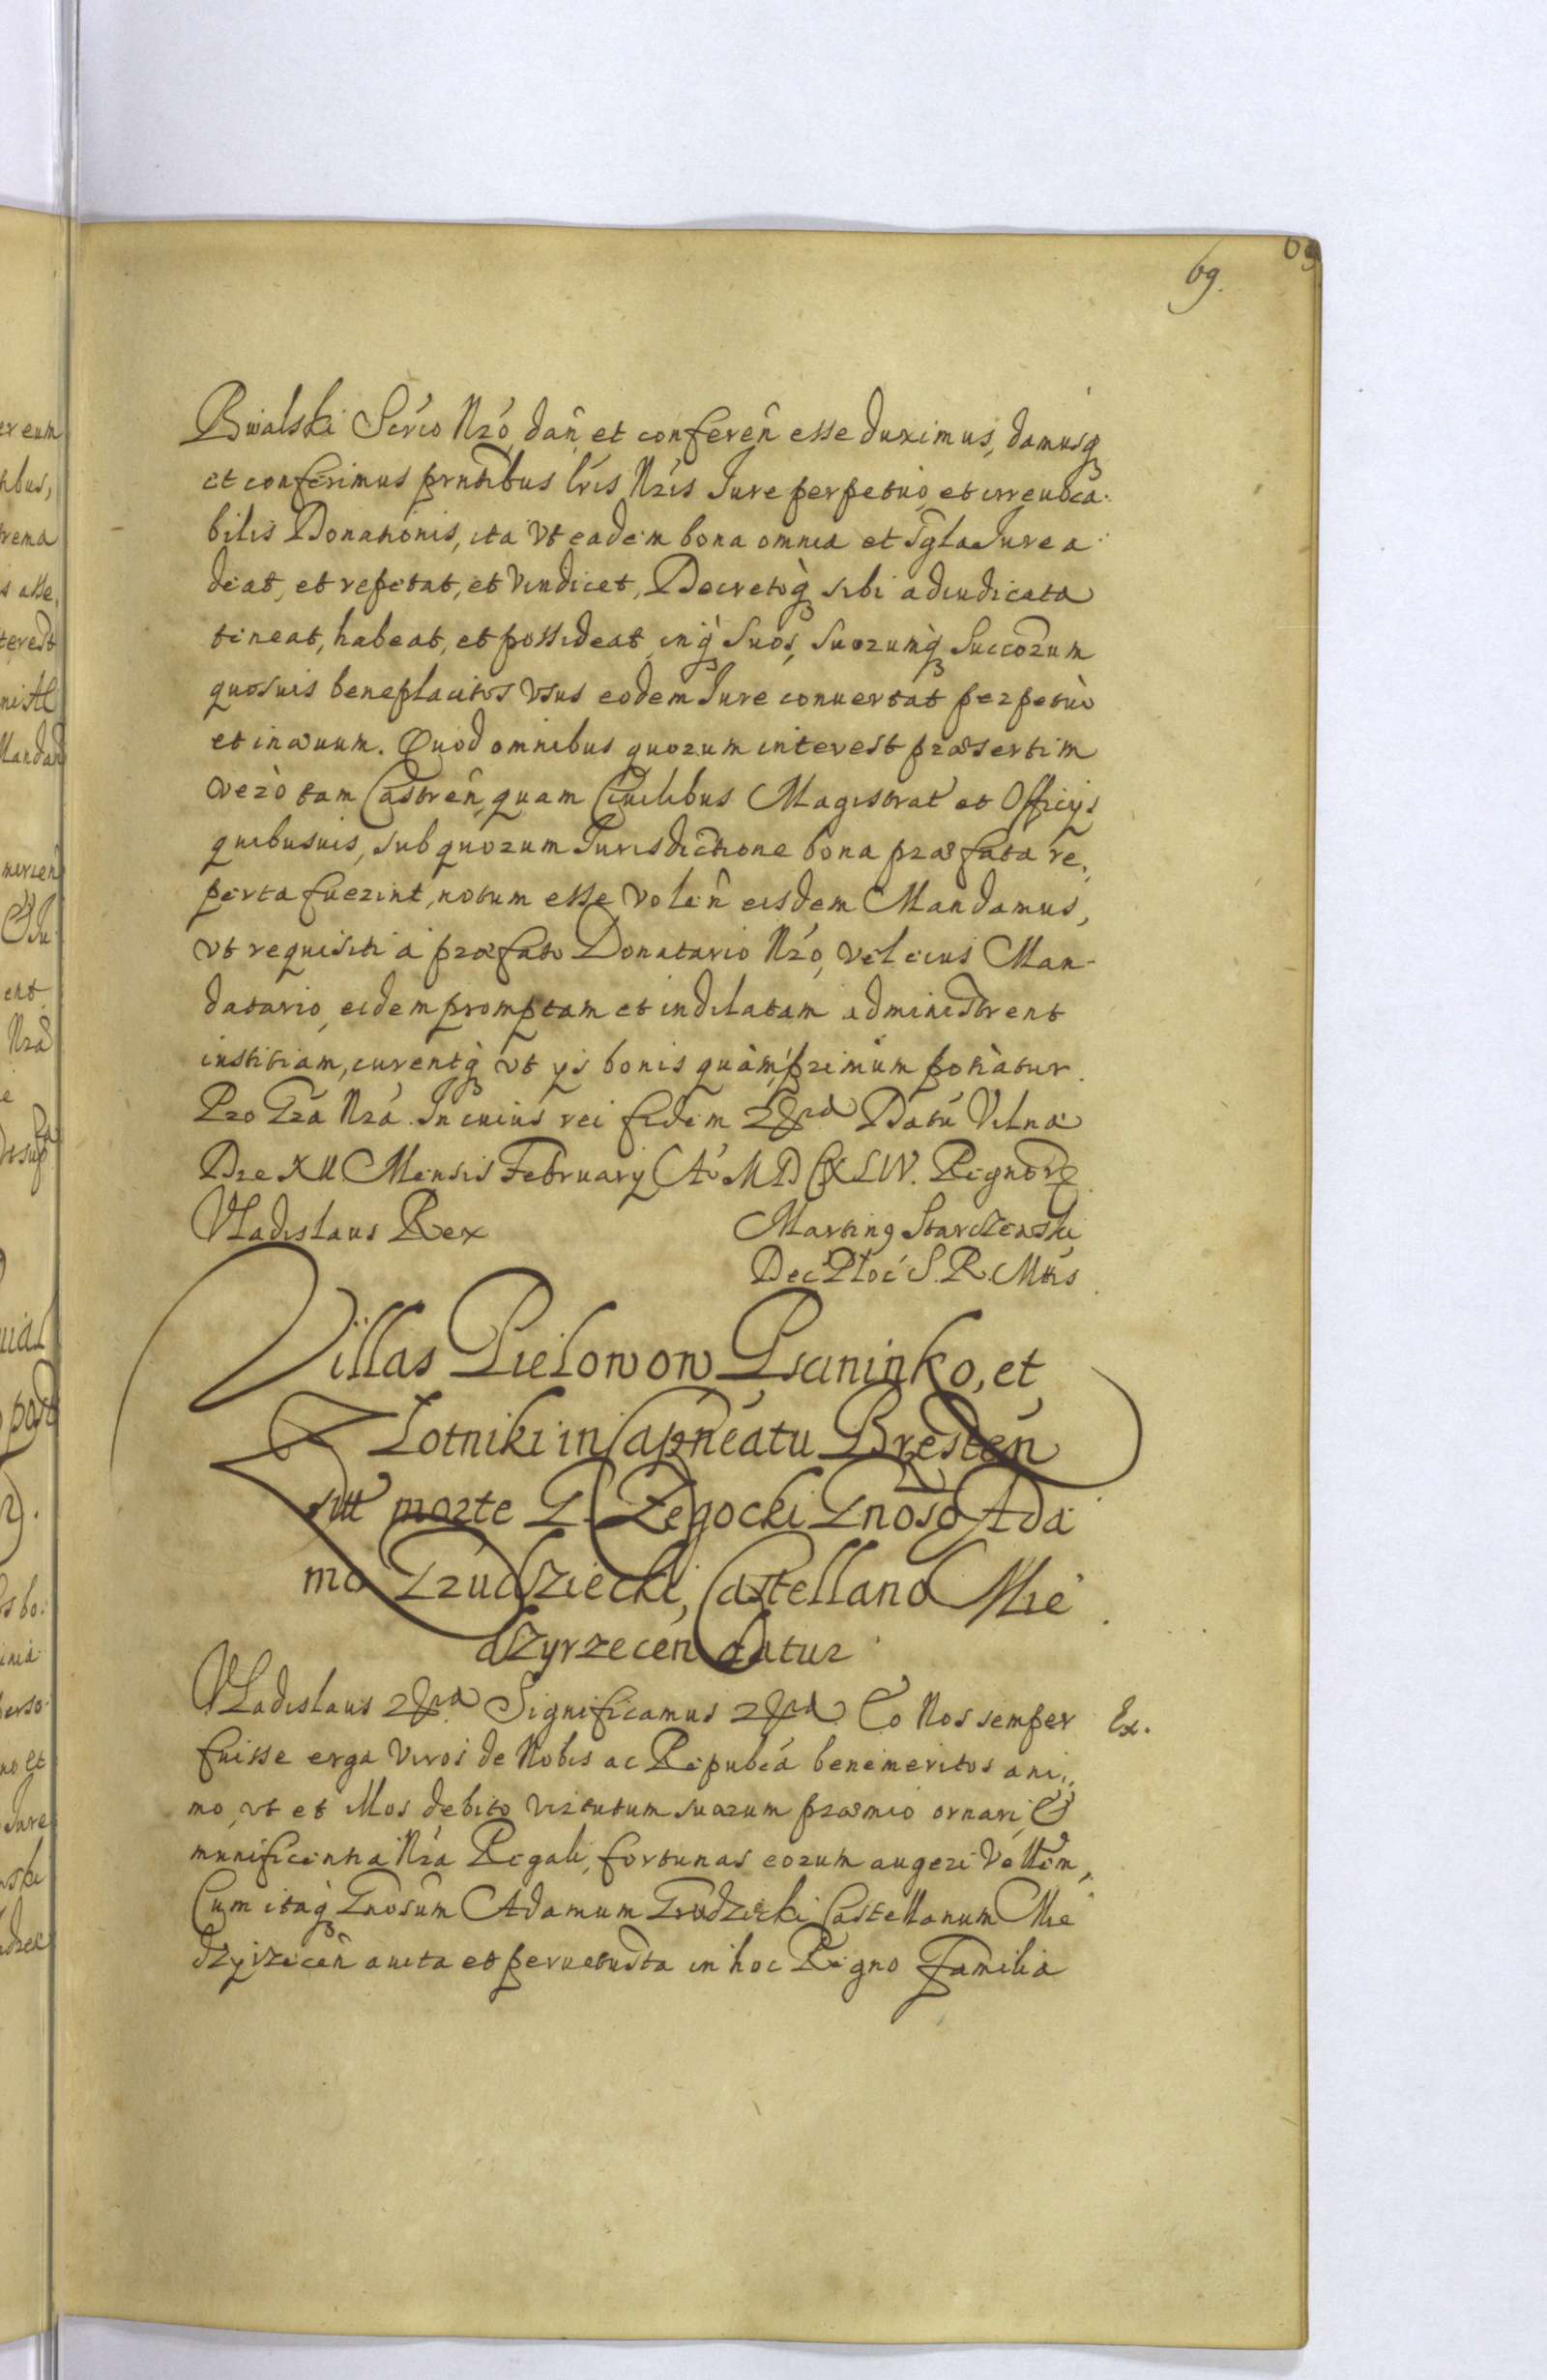 69.
69
Bwalski Servo Nro, dan̂ et conferen̂ esse duximus, damusq́
et conferimus prntibus lris Nris Jure perpetuo, et irreuoca-
bilis Donationis, ita vt eadem bona omnia et sgla Jure a
deat, et repetat, et vindicet, Decretoq́ sibi adiudicata
teneat, habeat, et possideat, inq́ suos, suorumq́ Succorum
quosuis beneplacitos vsus eodem Jure conuertat perpetuò
et in æuum. Quod omnibus quorum interest præsertim
verò tam Castren̂, quam Ciuilibus Magistrat et Officijs
quibusuis, sub quorum Jurisdictione bona præfata re,
perta fuerint, notum esse volen̂ eisdem Mandamus,
vt requisiti a præfato Donatario Nro, vel eius Man-
datario, eidem promptam et indilatam administrent
iustitiam, curentq́ vt ijs bonis quàmprimùm potiatur.
Pro Gra Nra. In cuius rei fidem &ra Datu Vilnæ
Die XII Mensis February Ao MDCXLIV. Regnor
Vladislaus Rex
Martin9 Starczewski
Dec Ploc S. R. Mtis
Villas Pielowow Psaninko, et
Zlotniki in Capneatu Bresten
 morte G. Zegocki Gnoso Ada
mo Grudziecki, Castellano Mie
dzyrzecen datur
Vladislaus &ra Significamus &ra Eo Nos semper
Ex.
fuisse erga viros de Nobis ac Repubca benemeritos ani,,
mo, vt et illos debito virtutum suarum præmio ornari, &
munificentia Nra Regali, fortunas eorum augeri vellem,
Cum itaq́ Gnosum Adamum Grudzicki Castellanum Mie
dzyrzecen̂ auita et peruetusta in hoc Regno Familia